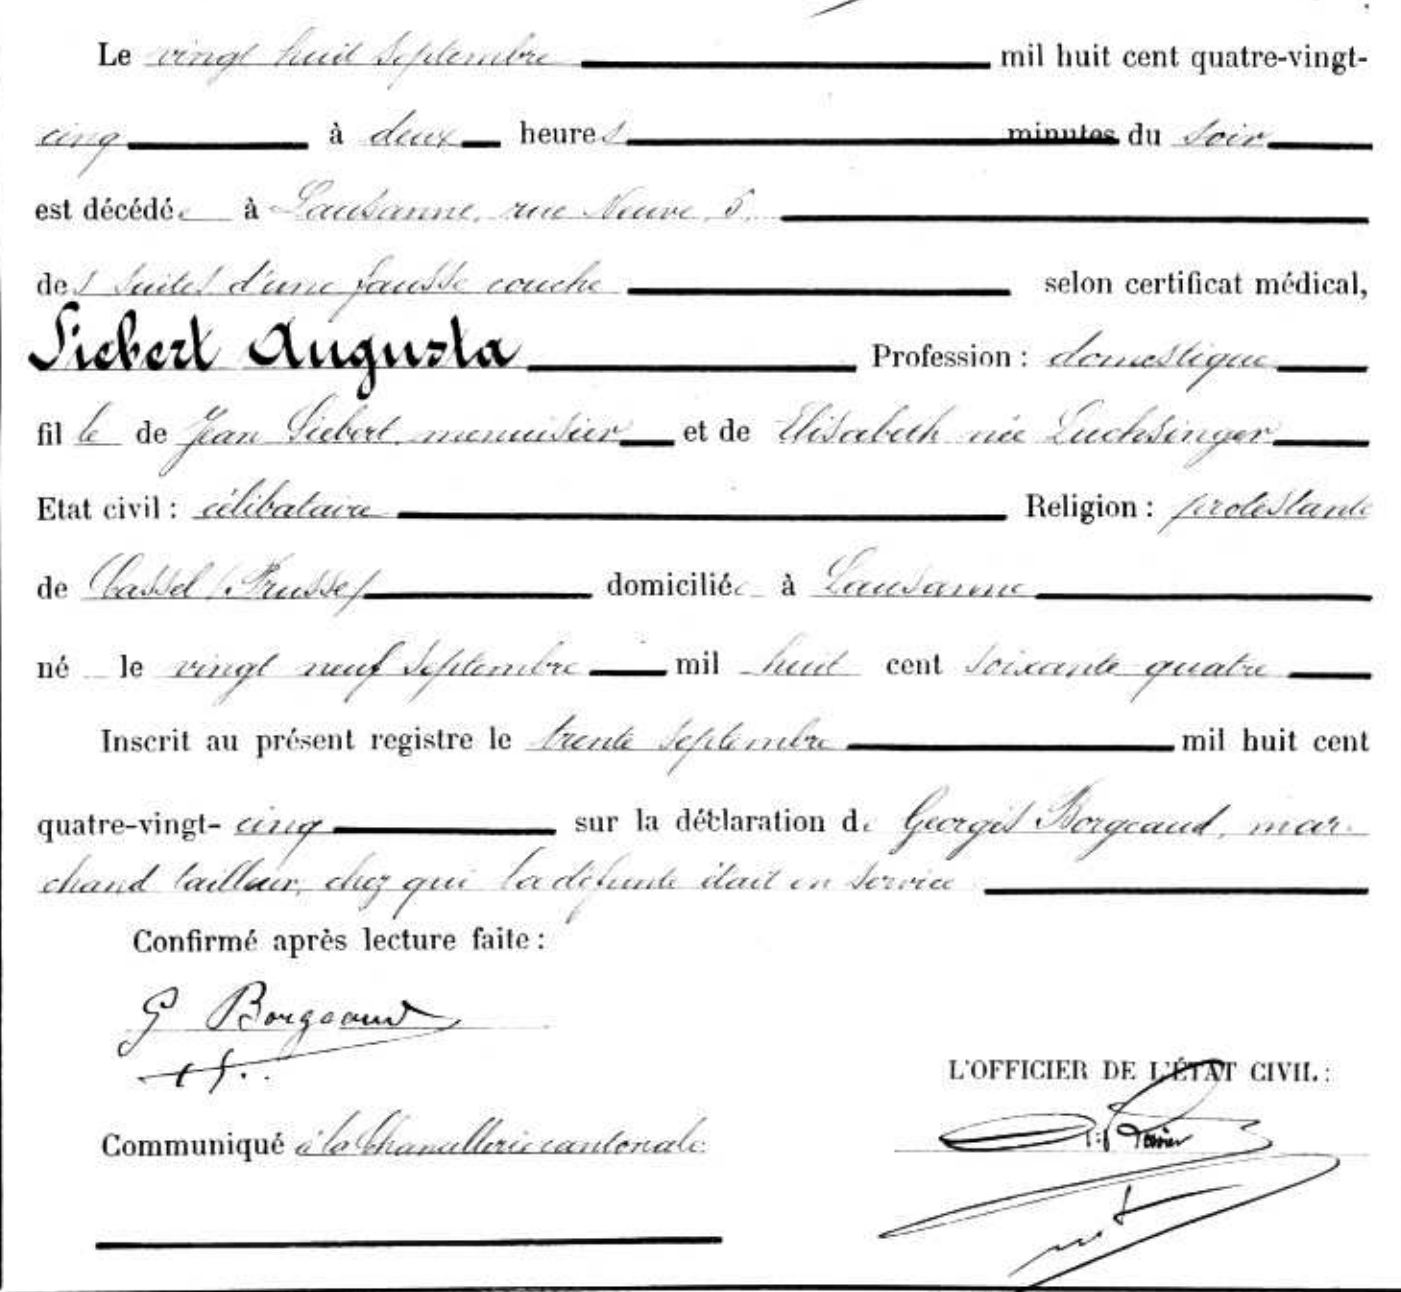 Le vingt huit Septembre mil huit cent quatre-vingt-
cinq à deux heures minutes du soir
est décédée à Lausanne, rue Neuve, 5,
des suites d'une fausse couche selon certificat médical,
Siebert Augusta Profession : domestique
fil le de Jean Siebert, menuisier et de Elisabeth née Luchsinger
Etat civil : célibataire Religion : protestante
de Cassel (Prusse) domiciliée à Lausanne
né le vingt neuf Septembre mil huit cent soixante quatre
Inscrit au présent registre le trente Septembre mil huit cent
quatre-vingt- cinq sur la déclaration de Georges Borgeaud, mar-
chand tailleur, chez qui la défunte était en service
Confirmé après lecture faite :
G Borgeaud
L'OFFICIER DE L'ÉTAT CIVIL :
Communiqué à la Chancellerie cantonale